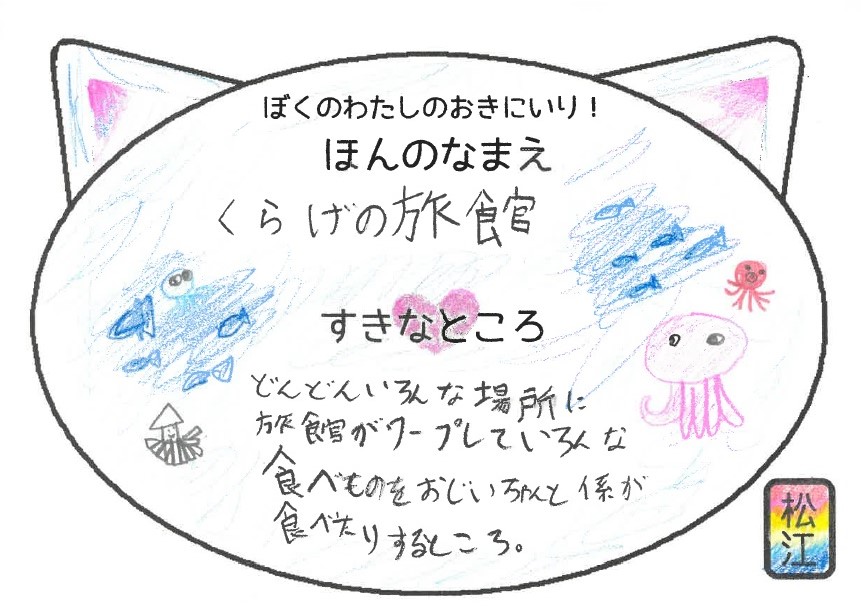 ぼくのわたしのおきにいり！
ほんのなまえ
くらげの旅館
すきなところ
どんどんいろんな場所に
旅館がワープしていろんな
食べものをおじいちゃんと係が
食べたりするところ。
松江